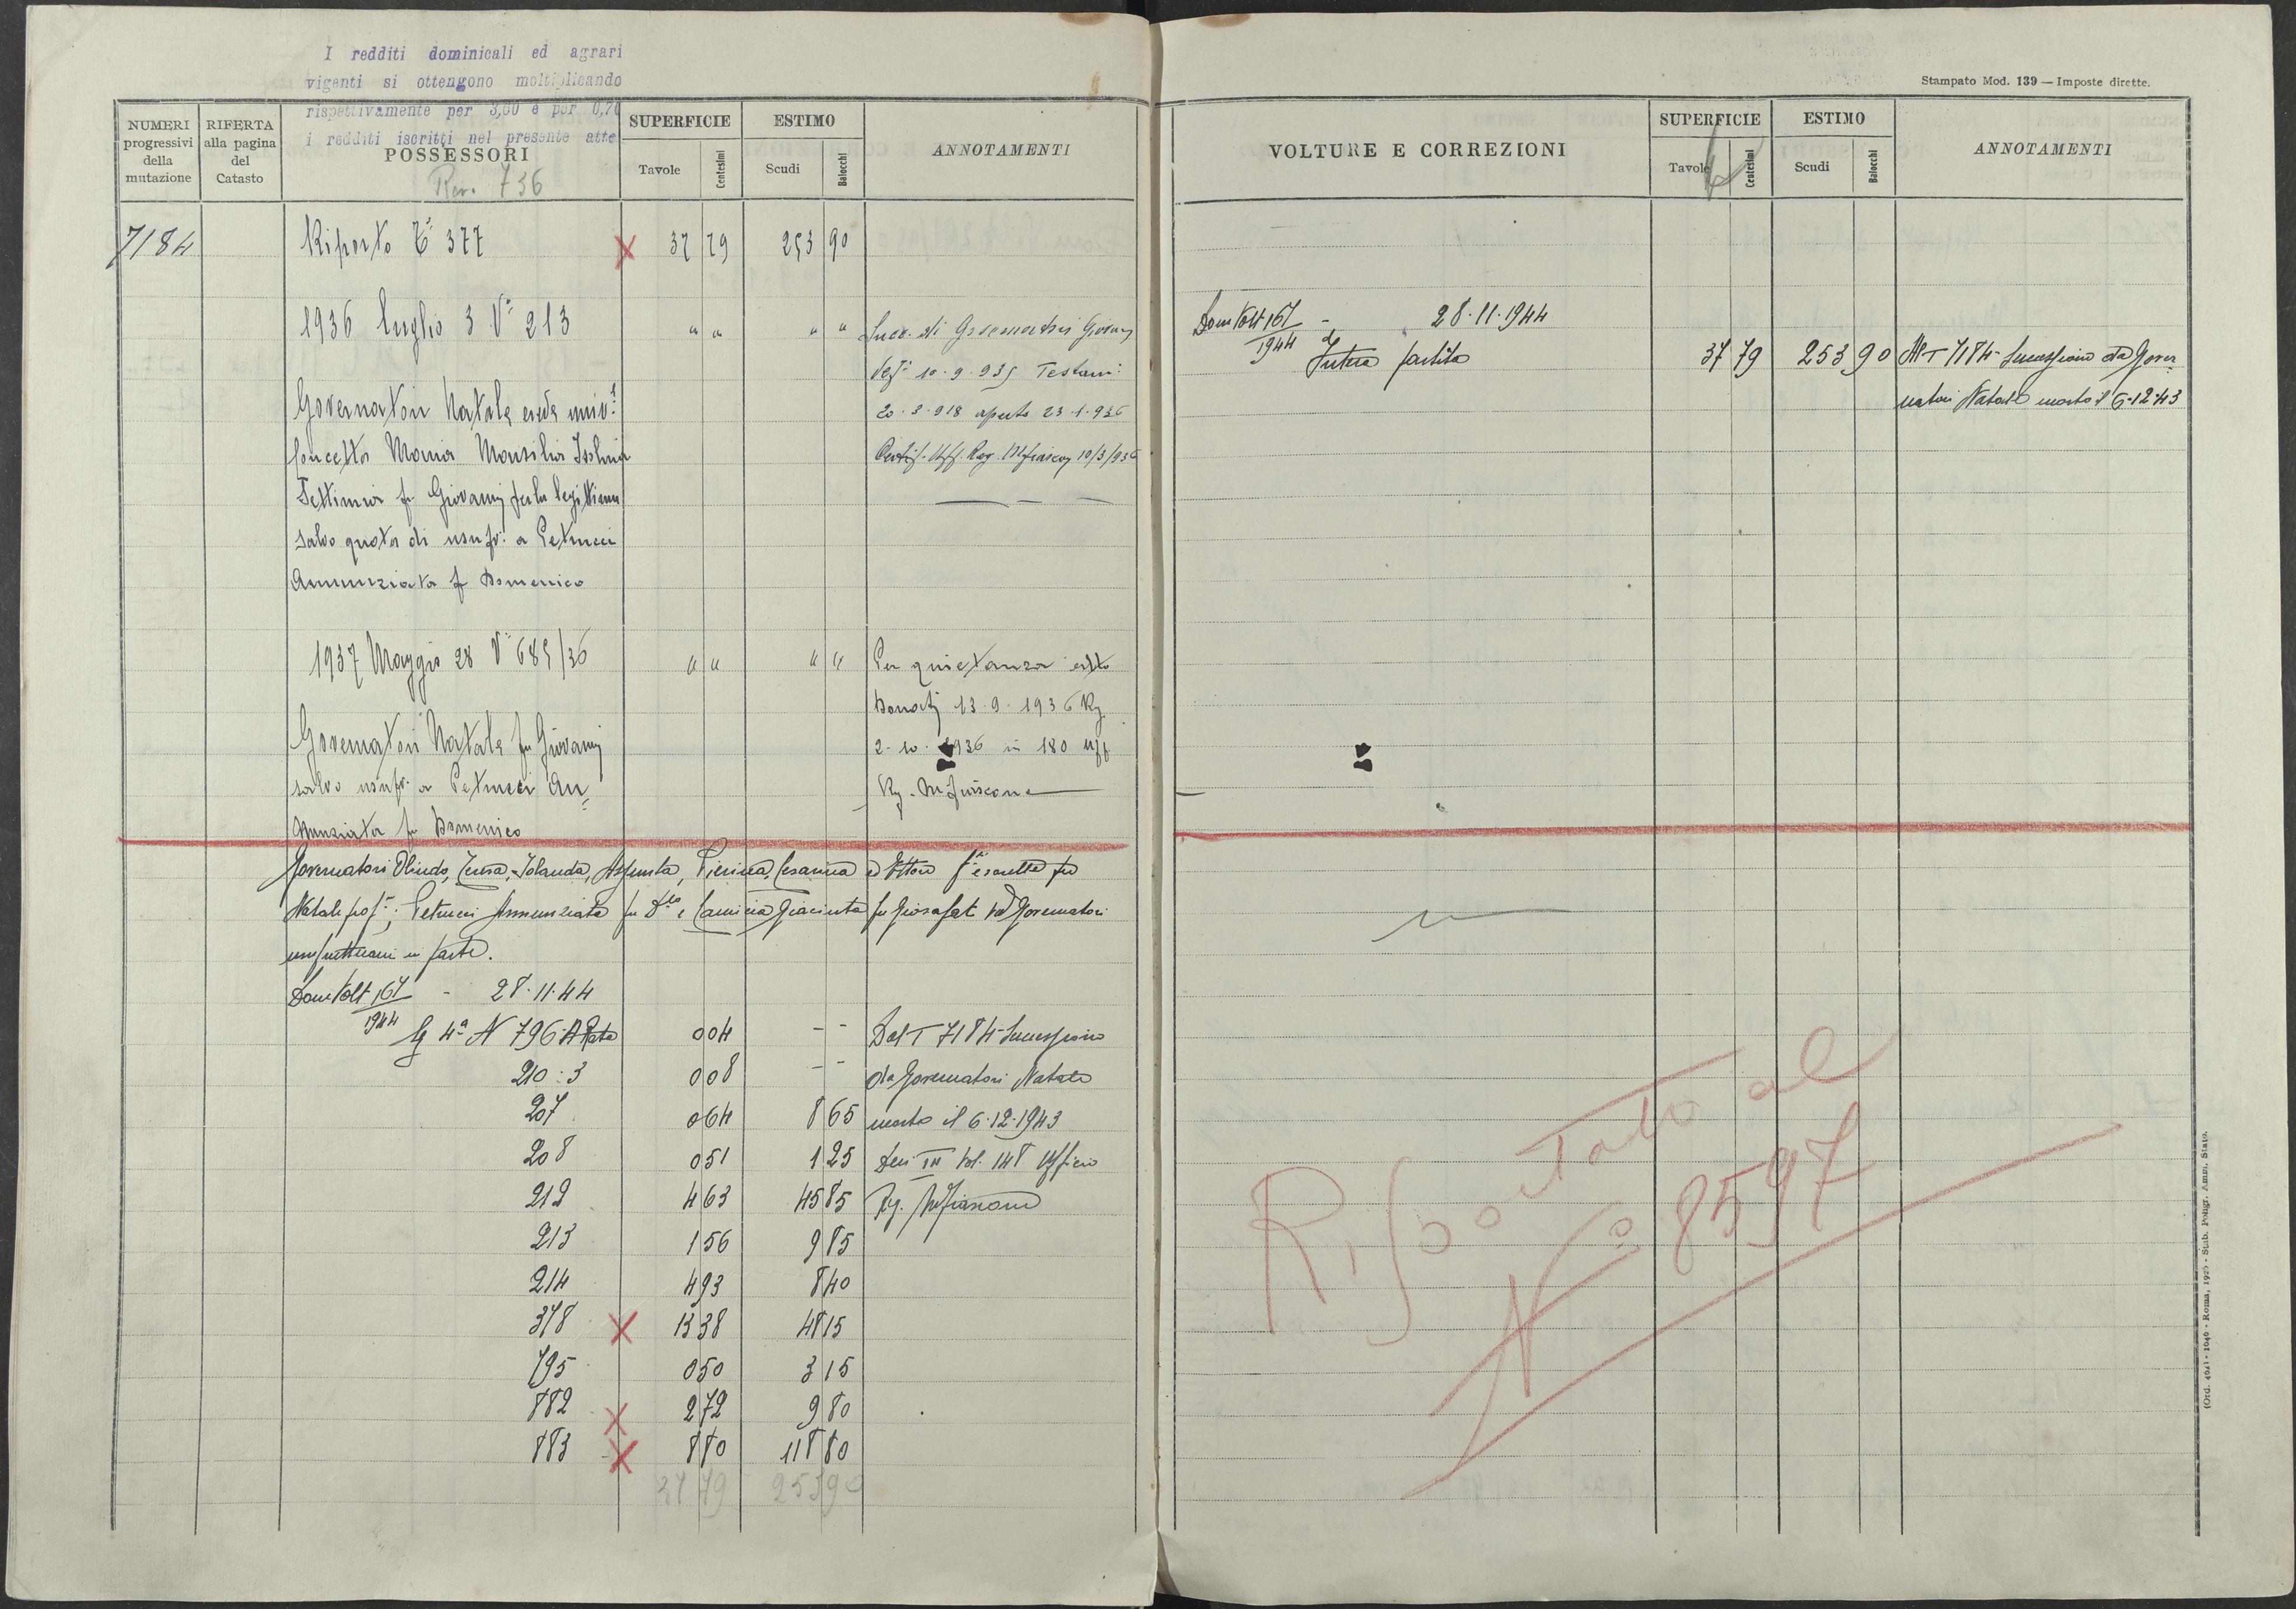 I redditi dominicali ed agrari
vigenti si ottengono moltiplicando
rispettivamente per 3,00 e per 0,70
i redditi iscritti nel presente atto
Stampato Mod. 139 — Imposte dirette.
NUMERI progressivi della mutazione
RIFERTA alla pagina del Catasto
POSSESSORI
Rer. 736
SUPERFICIE
Tavole
Centesimi
ESTIMO
Scudi
Baiocchi
ANNOTAMENTI
VOLTURE E CORREZIONI
SUPERFICIE
Tavole
Centesimi
ESTIMO
Scudi
Baiocchi
ANNOTAMENTI
7184 Riporto 377 X 37 79 253 90
1936 Luglio 3 V° 213 " " " " Succ. di Governatori Giovanni
def: 10-9-935 Testam:
Governatori Natale erede univ: 20-3-918 aperto 23-1-936
Concetta Maria Marsilia Isolina Certif. Uff. Reg. Mfiascon 10/3/936
Settimia fu Giovanni per la legittima
salvo quota di usufr: a Petrucci
Annunziata fu Domenico
1937 Maggio 28 V° 685/36 " " " " Per quietanza atto
Donati 13-9-1936 Rg
Governatori Natale fu Giovanni 2-10-1936 n 180 uff
salvo usufr. a Petrucci An= Rg. Mfiascone
nunziata fu Domenico
Governatori Olindo, Tersa, Iolanda, Assunta, Pierina, Cesarina ed Ettore fu
Natale prop.; Petrucci Annunziata fu D.co e Camicia Giacinta fu Giosafat ved Governatori
usufruttuari in parte.
Dom Volt 167/1944 - 28.11.44
Sz 4a N 796 A Rata 0 04 - - Dal T 7184 Successione
210:3 0 08 - - da Governatori Natale
207 0 64 8 65 morto il 6-12-1943
208 0 51 1 25 Den III Vol. 148 Ufficio
212 4 63 45 85 Rg. Mfiascone
213 1 56 9 85
214 4 93 8 40
378 X 13 38 48 15
795 0 50 3 15
882 X 2 72 9 80
883 X 8 80 118 80
37 79 253 90
Dom Volt 167/1944 - 28.11.1944
Intera partita 37 79 253 90 Al T 7184 Successione da Gover=
natori Natale morto il 6-12-43
al
N° 8597
(Ord. 4041 - 1040 - Roma, 1925 - Stab. Poligr. Amm. Stato.